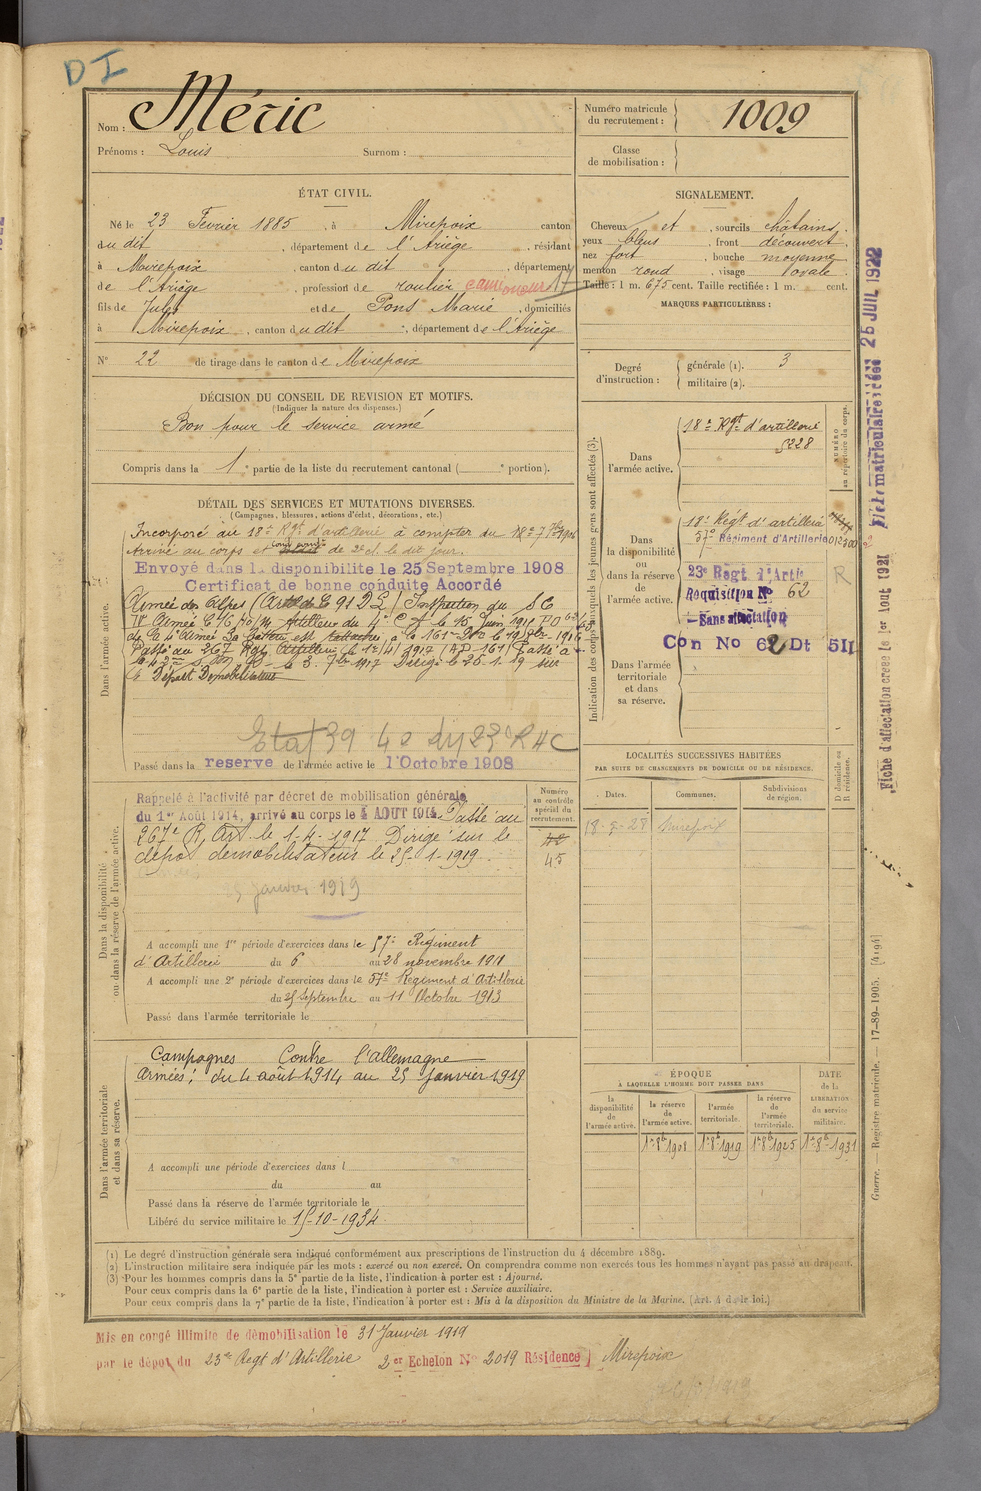 DI
Nom : Méric
Prénoms : Louis Surnom :
Numéro matricule du recrutement : 1009
Classe de mobilisation :
ÉTAT CIVIL.
Né le 23 Fevrier 1885, à Mirepoix canton
du dit, département de l'Ariège, résidant
à Mirepoix, canton du dit, département
de l'Ariège, profession de roulier
fils de Jules et de Pons Marie, domiciliés
à Mirepoix, canton du dit, département de l'Ariège
N° 22 de tirage dans le canton de Mirepoix
SIGNALEMENT.
Cheveux et, sourcils châtains,
yeux bleus, front découvert,
nez fort, bouche moyenne
menton rond, visage ovale.
Taille : 1 m. 675 cent. Taille rectifiée : 1 m. cent.
MARQUES PARTICULIÈRES :
Degré d'instruction : générale (1). 3
militaire (2).
DÉCISION DU CONSEIL DE REVISION ET MOTIFS.
(Indiquer la nature des dispenses.)
Bon pour le service armé
Compris dans la 1e partie de la liste du recrutement cantonal ( e portion).
DÉTAIL DES SERVICES ET MUTATIONS DIVERSES.
(Campagnes, blessures, actions d'éclat, décorations, etc.)
Dans l'armée active.
Incorporé au 18e Rgt d'artillerie à compter du
Arrivé au corps et de 2e cl. le dit jour.
Envoyé dans la disponibilite le 25 Septembre 1908
Certificat de bonne conduite Accordé
Passé au 267 Rgt
Etat 39
Passé dans la reserve de l'armée active le 1 Octobre 1908
Indication des corps auxquels les jeunes gens sont affectés (3).
NUMÉRO au répertoire du corps.
Dans l'armée active.
18e Rgt d'artillerie
5228
Dans la disponibilité ou dans la réserve de l'armée active.
18e Régt d'artillerie
37e Régiment d'Artillerie
23e Regt d'Artie
Requisition N° 62
Sans affectation
R
Con No 62 Dt 5II
Dans l'armée territoriale et dans sa réserve.
LOCALITÉS SUCCESSIVES HABITÉES
PAR SUITE DE CHANGEMENTS DE DOMICILE OU DE RÉSIDENCE.
Dates. Communes. Subdivisions de région. D domicile ou R résidence.
Mirepoix
Dans la disponibilité ou dans la réserve de l'armée active.
Numéro au contrôle spécial du recrutement.
45
Rappelé à l'activité par décret de mobilisation générale
du 1er Août 1914, arrivé au corps le 4 AOUT 1914. Passé au
267e R, Art le 1-4-1917 Dirigé sur le
dépot démobilisateur le 25-1-1919.
25 janvier 1919
A accompli une 1re période d'exercices dans le 57e Régiment
d'Artillerie du 6 au 28 novembre 1911
A accompli une 2e période d'exercices dans le 57e Regiment d'Artillerie
du 25 Septembre au 11 Octobre 1913
Passé dans l'armée territoriale le
Dans l'armée territoriale et dans sa réserve.
Campagnes Contre l'allemagne
Armées : du 4 août 1914 au 25 janvier 1919
A accompli une période d'exercices dans l
du au
Passé dans la réserve de l'armée territoriale le
Libéré du service militaire le 15-10-1934
ÉPOQUE
À LAQUELLE L'HOMME DOIT PASSER DANS
DATE de la LIBÉRATION du service militaire.
la disponibilité de l'armée active. la réserve de l'armée active. l'armée territoriale. la réserve de l'armée territoriale.
1er 8bre 1908 1er 8bre 1919 1er 8bre 1925 1er 8bre 1931
(1) Le degré d'instruction générale sera indiqué conformément aux prescriptions de l'instruction du 4 décembre 1889.
(2) L'instruction militaire sera indiquée par les mots : exercé ou non exercé. On comprendra comme non exercés tous les hommes n'ayant pas passé au drapeau.
(3) Pour les hommes compris dans la 5e partie de la liste, l'indication à porter est : Ajourné.
Pour ceux compris dans la 6e partie de la liste, l'indication à porter est : Service auxiliaire.
Pour ceux compris dans la 7e partie de la liste, l'indication à porter est : Mis à la disposition du Ministre de la Marine. (Art. 4 de la loi.)
Mis en congé illimité de démobilisation le 31 Janvier 1919
par le dépôt du 23e Regt d'Artillerie 2er Echelon N° 2019 Résidence Mirepoix
Fiche matriculaire créée 26 JUIL 1922
Fiche d'affectation créée le 1er Aout 1921
Guerre. — Registre matricule. — 17-89-1905. [4194]